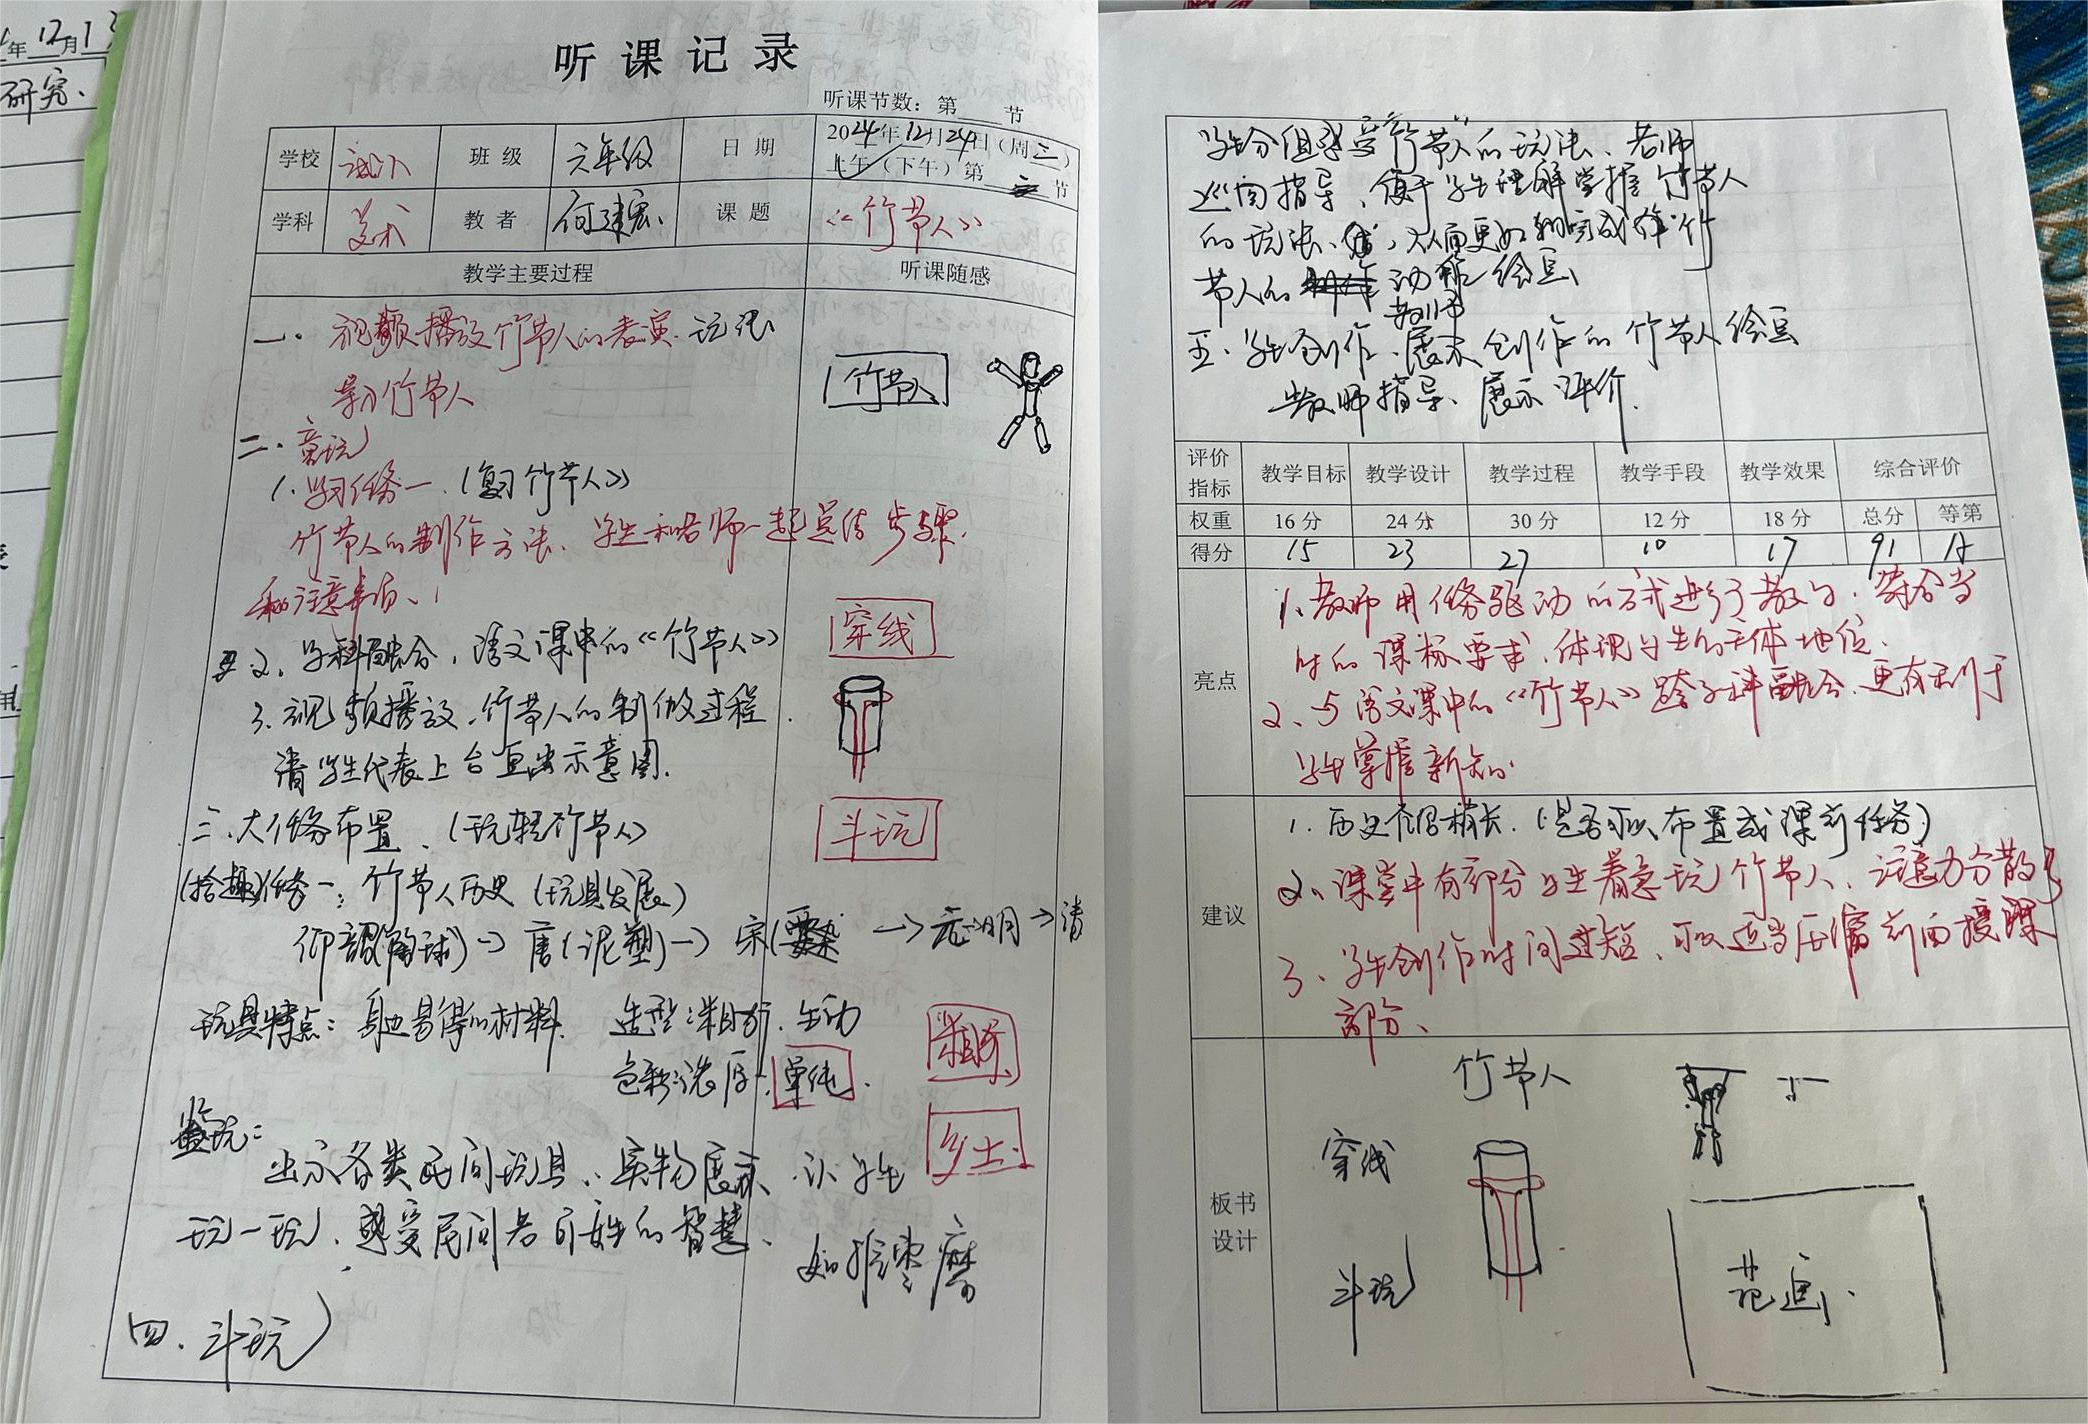 年12月1
研究.
听课记录
听课节数：第 节
学校 班级 六年级 日期 2024年12月24日（周三）
上午（下午）第 三 节
学科 美术 教者 何建宏 课题 《竹节人》
教学主要过程 听课随感
一. 视频播放竹节人的表演.玩法
导入竹节人
竹节人
二. 童玩
1. 学习任务一.（复习竹节人》
竹节人的制作方法、学生和老师一起总结步骤.
和注意事项、
穿线
2、学科融合，语文课中的《竹节人》
3. 视频播放.竹节人的制做过程
请学生代表上台画出示意图.
斗玩
三.大任务布置、（玩转竹节人）
(拾趣)任务一：竹节人历史（玩具发展）
仰韶(陶球)→唐(泥塑)→宋( →元.明→清
玩具特点：身边易得的材料. 造型：粗犷.生动
色彩：浓厚.单纯.
粗犷
乡土.
鉴玩：
出示各类民间玩具、实物展示.让学生
玩一玩、感受民间老百姓的智慧、
如推枣磨
四.斗玩
学生分组感受“竹节人”的玩法、老师
巡回指导，便于学生理解掌握竹节人
的玩法、 ，从而更好的完成 竹
节人的 动能绘画
五.学生创作.展示创作的竹节人绘画
教师
教师指导、展示评价.
评价指标 教学目标 教学设计 教学过程 教学手段 教学效果 综合评价
权重 16分 24分 30分 12分 18分 总分 等第
得分 15 23 27 10 17 91 A
亮点
1.教师用任务驱动的方式进行了教学.符合当
时的课标要求.体现学生的主体地位.
2、与语文课中的《竹节人》跨学科融合.更有利于
学生掌握新知.
建议
1. 历史介绍稍长.（是否可以布置成课前任务）
2、课堂中有部分学生着急玩竹节人、注意力分散了
3、学生创作时间过短、可以适当压缩前面授课
部分、
板书设计
竹节人
穿线
斗玩
范画.